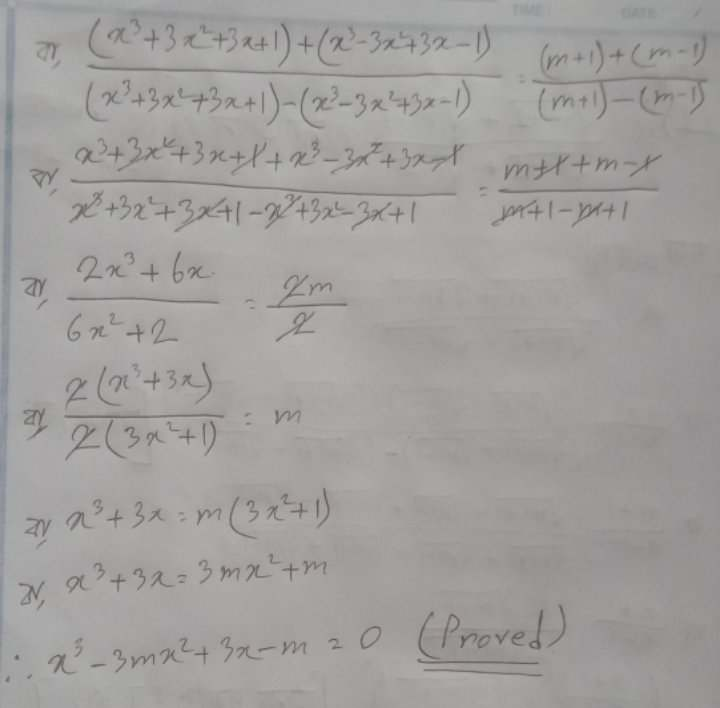 TIME : DATE /
বা, ((x³+3x²+3x+1)+(x³-3x²+3x-1))/((x³+3x²+3x+1)-(x³-3x²+3x-1)) = ((m+1)+(m-1))/((m+1)-(m-1))
বা, (x³+3x²+3x+1+x³-3x²+3x-1)/(x³+3x²+3x+1-x³+3x²-3x+1) = (m+1+m-1)/(m+1-m+1)
বা, (2x³+6x)/(6x²+2) = 2m/2
বা, 2(x³+3x)/2(3x²+1) = m
বা, x³+3x = m(3x²+1)
বা, x³+3x = 3mx²+m
∴ x³-3mx²+3x-m = 0 (Proved)